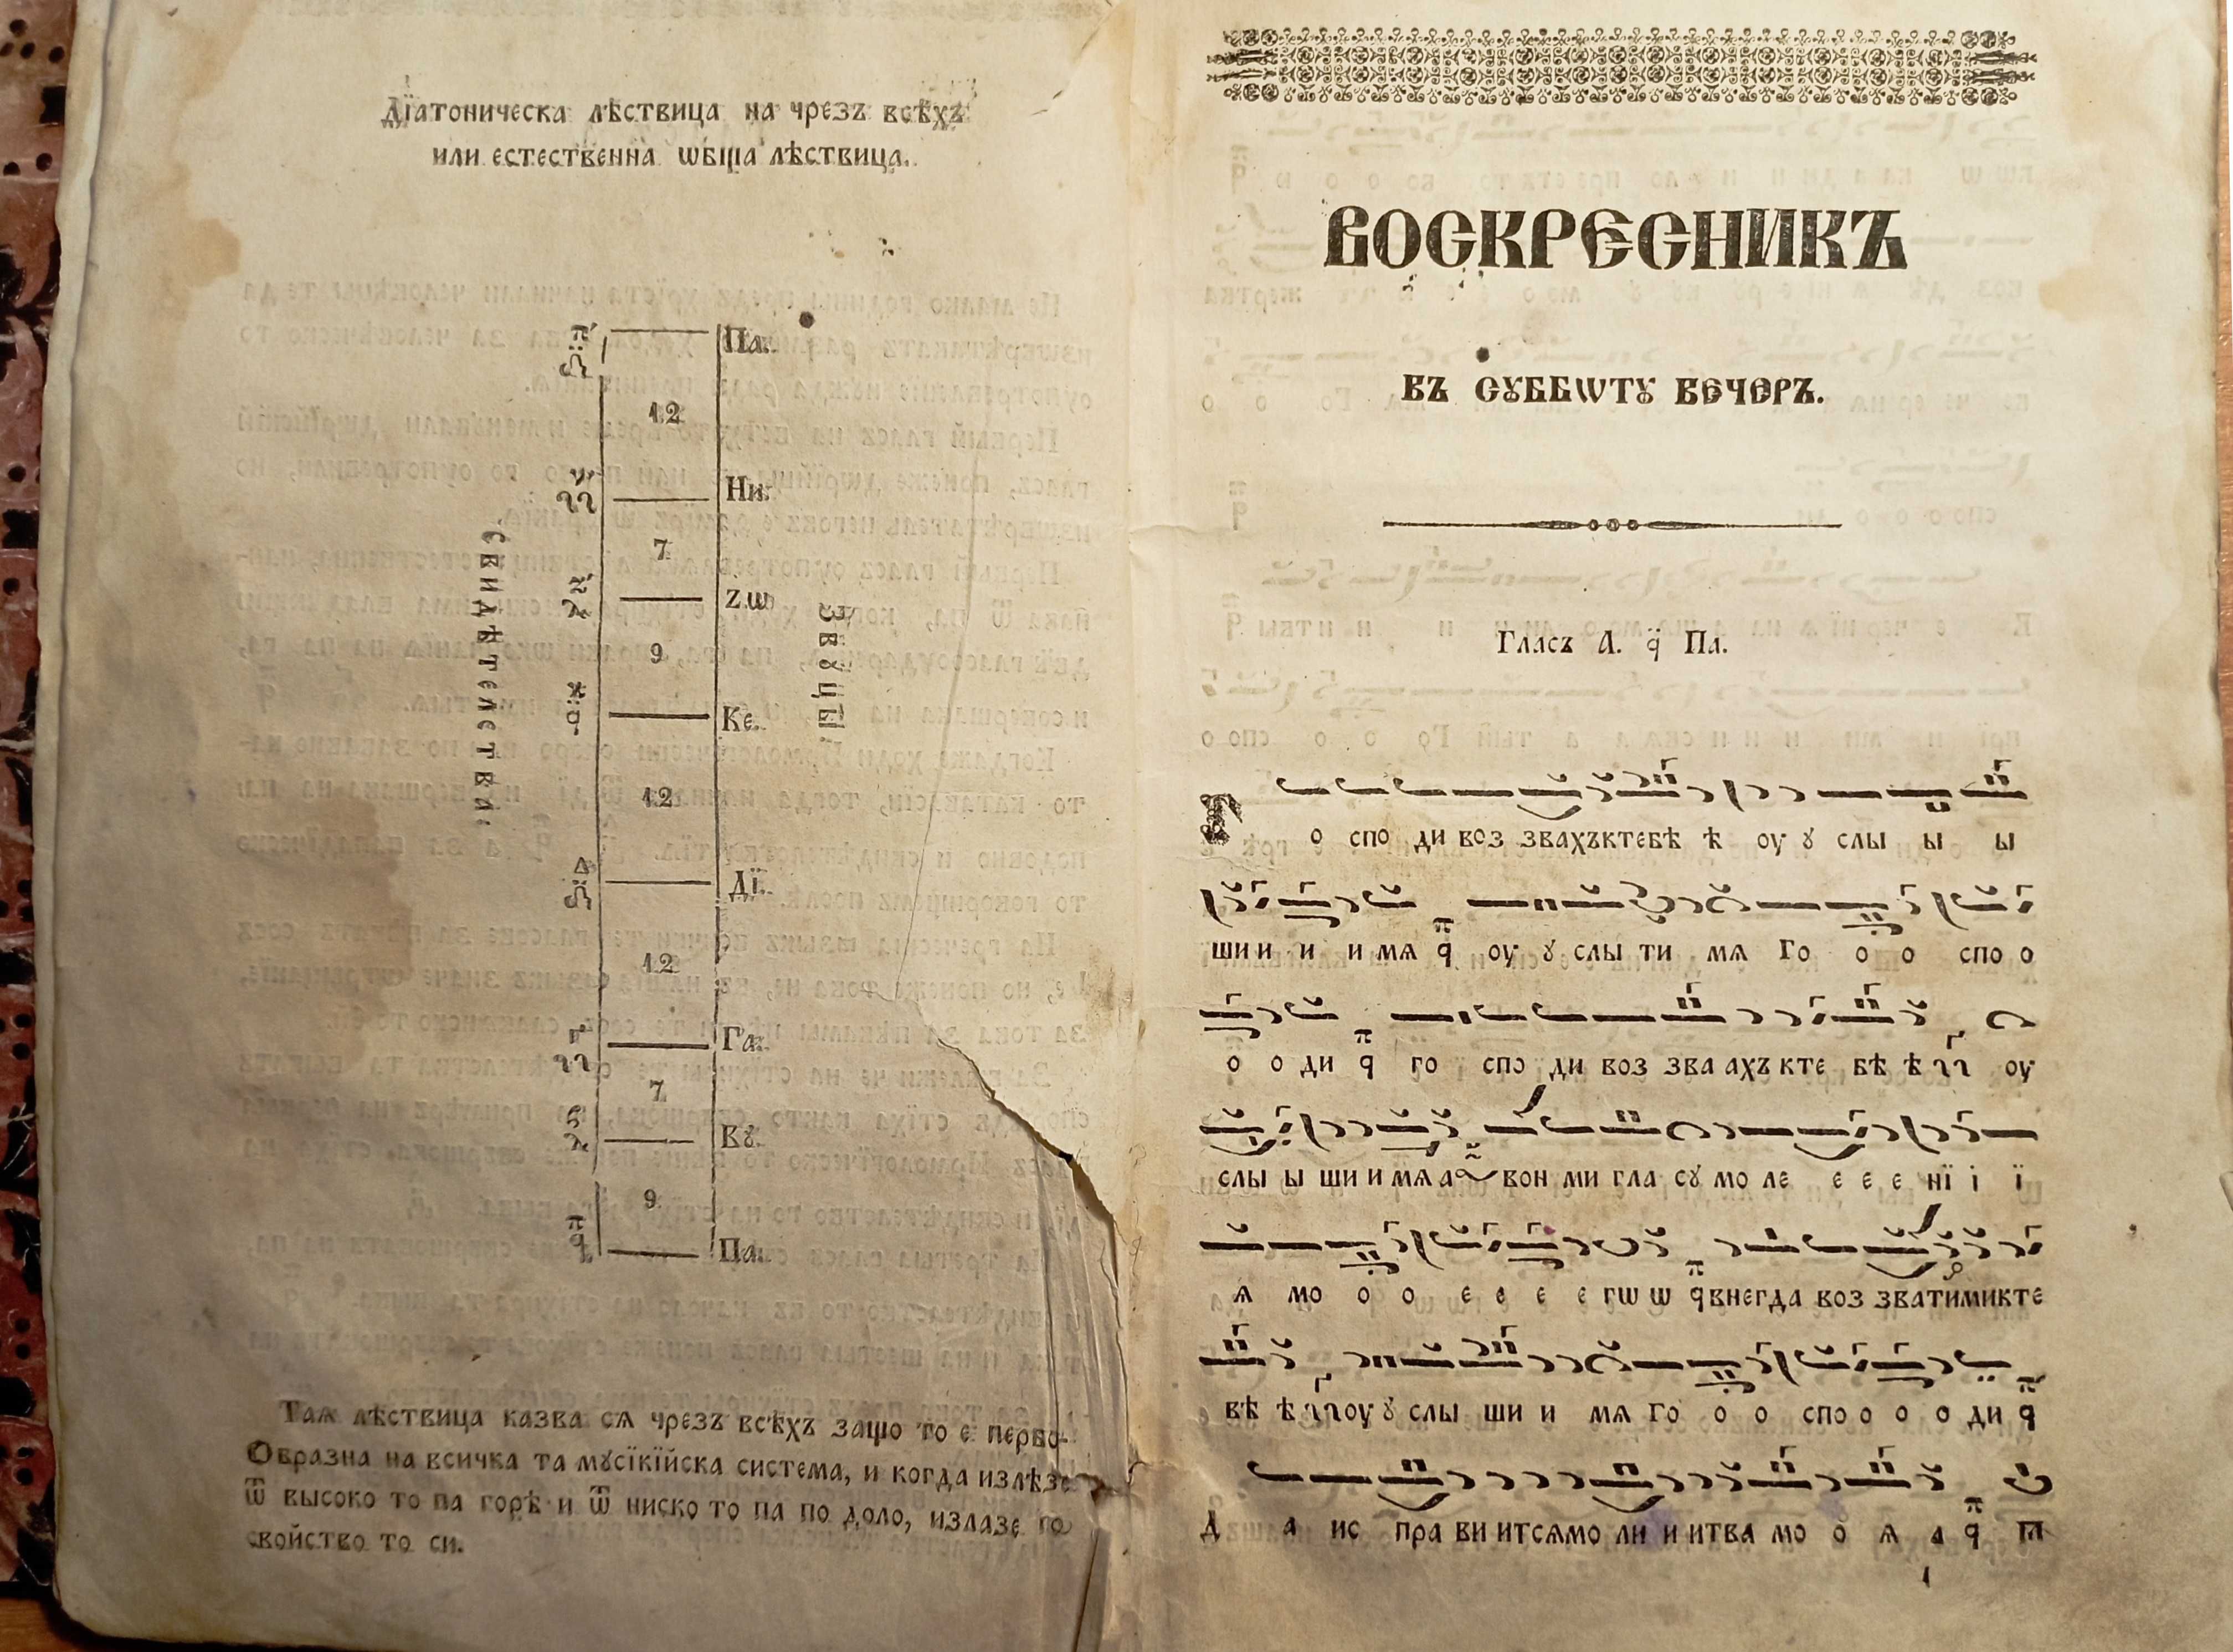 Дїатоническа лѣствица на чрезъ всѣхъ
или естественна ѡбща лѣствица.
Па.
12
Ни.
7
Zѡ
9
Ке.
12
Дї.
12
Га.
7
Вꙋ.
9
Па.
свидѣтелства.
Звꙋцы.
Таѧ лѣствица казва сѧ чрезъ всѣхъ защо то є перво-
Ѻбразна на всичка та мꙋсїкїйска система, и когда излѣзе
ѿ высоко то па горѣ и ѿ ниско то па по доло, излазе го
свойство то си.
ВОСКРЕСНИКЪ
ВЪ СꙊББѠТꙊ ВЕЧЕРЪ.
Гласъ А. q̈ Па.
Г о спо ди воз звахъктебѣ ѣ оу ꙋ слы ы ы
ши и и и мѧ q оу ꙋ слы ти мѧ Го о о спо о
о о ди q го спо ди воз зва ахъ кте бѣ ѣ оу
слы ы ши и мѧ а вон ми гла сꙋ мо ле е е е нї і ї
ѧ мо о о е е е е гѡ ѡ q внегда воз зватимикте
бѣ ѣ оу ꙋ слы ши и мѧ го о о спо о о о ди q
Д а ис пра ви итсѧмо ли и итва мо о ѧ а q